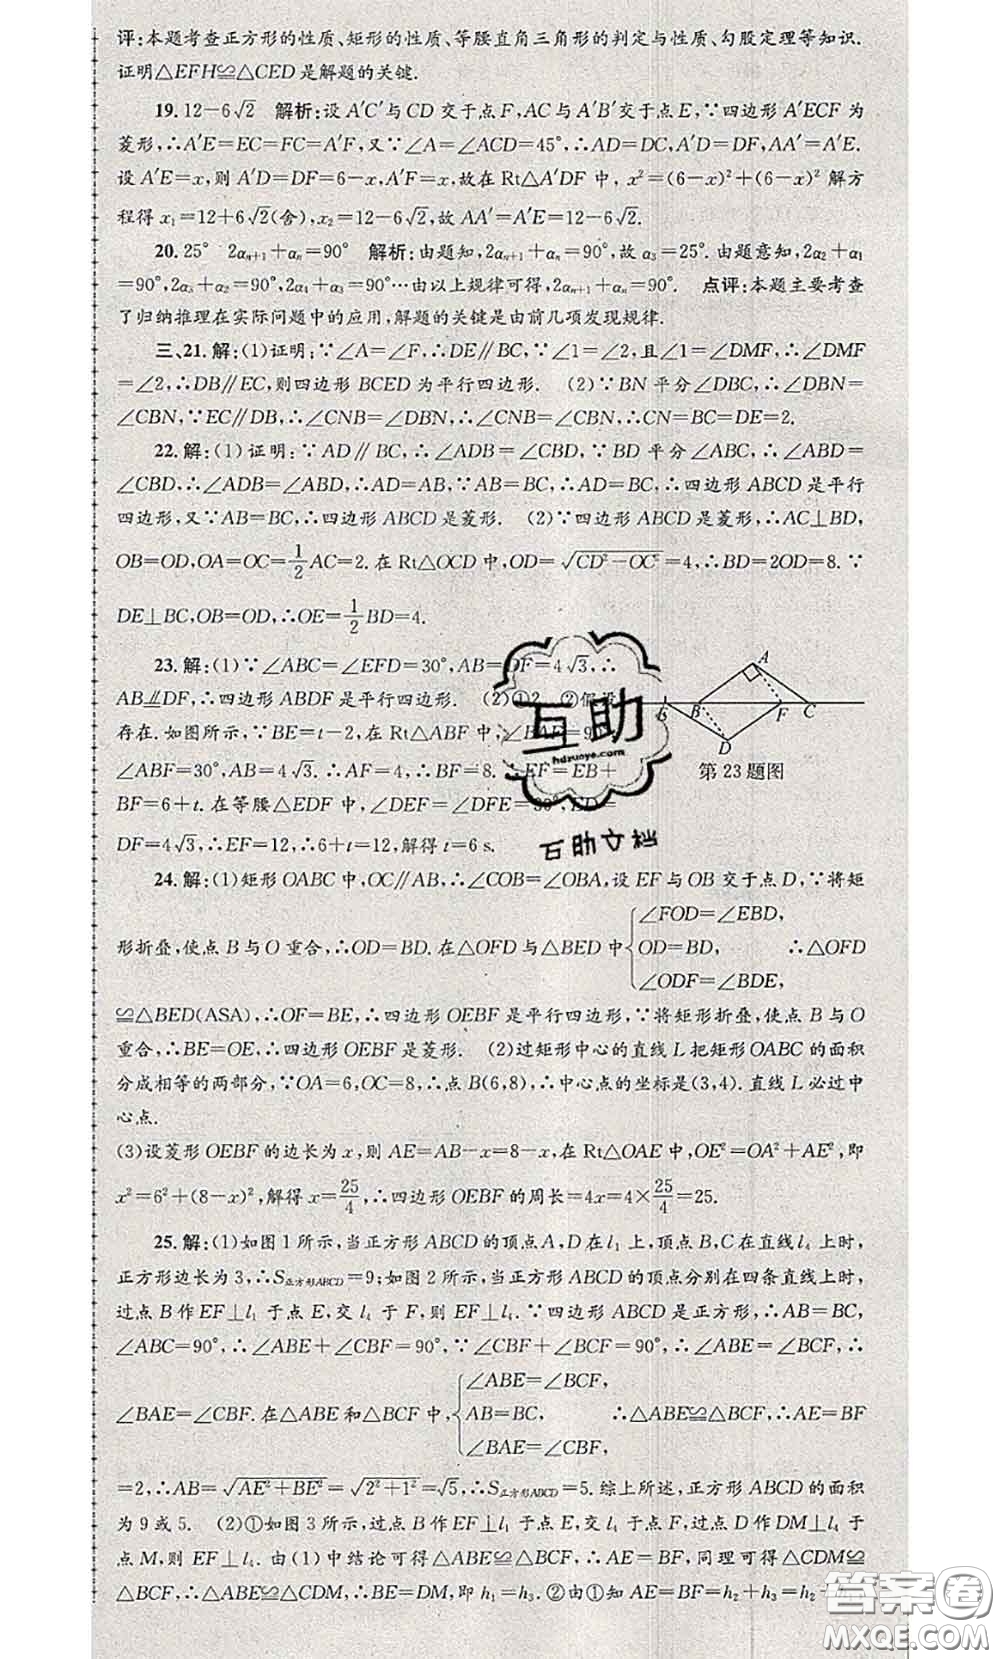 评:本题考查正方形的性质、矩形的性质、等腰直角三角形的判定与性质、勾股定理等知识.
证明△EFH≌△CED是解题的关键.
19. 12－6√2　解析:设A′C′与CD交于点F,AC与A′B′交于点E,∵四边形A′ECF为
菱形,∴A′E=EC=FC=A′F,又∵∠A=∠ACD=45°,∴AD=DC,A′D=DF,AA′=A′E.
设A′E=x,则A′D=DF=6－x,A′F=x,故在Rt△A′DF中, x²=(6－x)²+(6－x)² 解方
程得x₁=12+6√2(舍),x₂=12－6√2,故AA′=A′E=12－6√2.
20. 25°　2αₙ₊₁+αₙ=90°　解析:由题知,2αₙ₊₁+αₙ=90°,故α₃=25°.由题意知,2α₂+α₁
=90°,2α₃+α₂=90°,2α₄+α₃=90°…由以上规律可得,2αₙ₊₁+αₙ=90°.　点评:本题主要考查
了归纳推理在实际问题中的应用,解题的关键是由前几项发现规律.
三、21.解:(1)证明:∵∠A=∠F,∴DE∥BC,∵∠1=∠2,且∠1=∠DMF,∴∠DMF
=∠2,∴DB∥EC,则四边形BCED为平行四边形.　(2)∵BN平分∠DBC,∴∠DBN=
∠CBN,∵EC∥DB,∴∠CNB=∠DBN,∴∠CNB=∠CBN,∴CN=BC=DE=2.
22.解:(1)证明:∵AD∥BC,∴∠ADB=∠CBD,∵BD平分∠ABC,∴∠ABD=
∠CBD,∴∠ADB=∠ABD,∴AD=AB,∵AB=BC,∴AD=BC,∴四边形ABCD是平行
四边形,又∵AB=BC,∴四边形ABCD是菱形.　(2)∵四边形ABCD是菱形,∴AC⊥BD,
OB=OD,OA=OC=1/2AC=2.在Rt△OCD中,OD=√(CD²－OC²)=4,∴BD=2OD=8.∵
DE⊥BC,OB=OD,∴OE=1/2BD=4.
23.解:(1)∵∠ABC=∠EFD=30°,AB=DF=4√3,∴
AB∥DF,∴四边形ABDF是平行四边形.　(2)①2　②假设
存在.如图所示,∵BE=t－2,在Rt△ABF中,∠BAF=90°,
∠ABF=30°,AB=4√3.∴AF=4,∴BF=8.∴EF=EB+
BF=6+t.在等腰△EDF中,∠DEF=∠DFE=30°,ED=
DF=4√3,∴EF=12,∴6+t=12,解得t=6 s.
A
E B F C
D
第23题图
24.解:(1)矩形OABC中,OC∥AB,∴∠COB=∠OBA,设EF与OB交于点D,∵将矩
形折叠,使点B与O重合,∴OD=BD.在△OFD与△BED中{∠FOD=∠EBD, OD=BD, ∠ODF=∠BDE,　∴△OFD
≌△BED(ASA),∴OF=BE,∴四边形OEBF是平行四边形,∵将矩形折叠,使点B与O
重合,∴BE=OE,∴四边形OEBF是菱形.　(2)过矩形中心的直线L把矩形OABC的面积
分成相等的两部分,∵OA=6,OC=8,∴点B(6,8),∴中心点的坐标是(3,4).直线L必过中
心点.
(3)设菱形OEBF的边长为x,则AE=AB－x=8－x,在Rt△OAE中,OE²=OA²+AE²,即
x²=6²+(8－x)²,解得x=25/4,∴四边形OEBF的周长=4x=4×25/4=25.
25.解:(1)如图1所示,当正方形ABCD的顶点A,D在l₁上,顶点B,C在直线l₄上时,
正方形边长为3,∴S正方形ABCD=9;如图2所示,当正方形ABCD的顶点分别在四条直线上时,
过点B作EF⊥l₁于点E,交l₄于F,则EF⊥l₄.∵四边形ABCD是正方形,∴AB=BC,
∠ABC=90°,∴∠ABE+∠CBF=90°,∵∠CBF+∠BCF=90°,∴∠ABE=∠BCF,∴
∠BAE=∠CBF.在△ABE和△BCF中,{∠ABE=∠BCF, AB=BC, ∠BAE=∠CBF,　∴△ABE≌△BCF,∴AE=BF
=2,∴AB=√(AE²+BE²)=√(2²+1²)=√5,∴S正方形ABCD=5.综上所述,正方形ABCD的面积
为9或5.　(2)①如图3所示,过点B作EF⊥l₁于点E,交l₄于点F,过点D作DM⊥l₄于
点M,则EF⊥l₄.由(1)中结论可得△ABE≌△BCF,∴AE=BF,同理可得△CDM≌
△BCF,∴△ABE≌△CDM,∴BE=DM,即h₁=h₃.②由①知AE=BF=h₂+h₃=h₂+
互助
hdzuoye.com
互助文档
答案圈
MXQE.COM